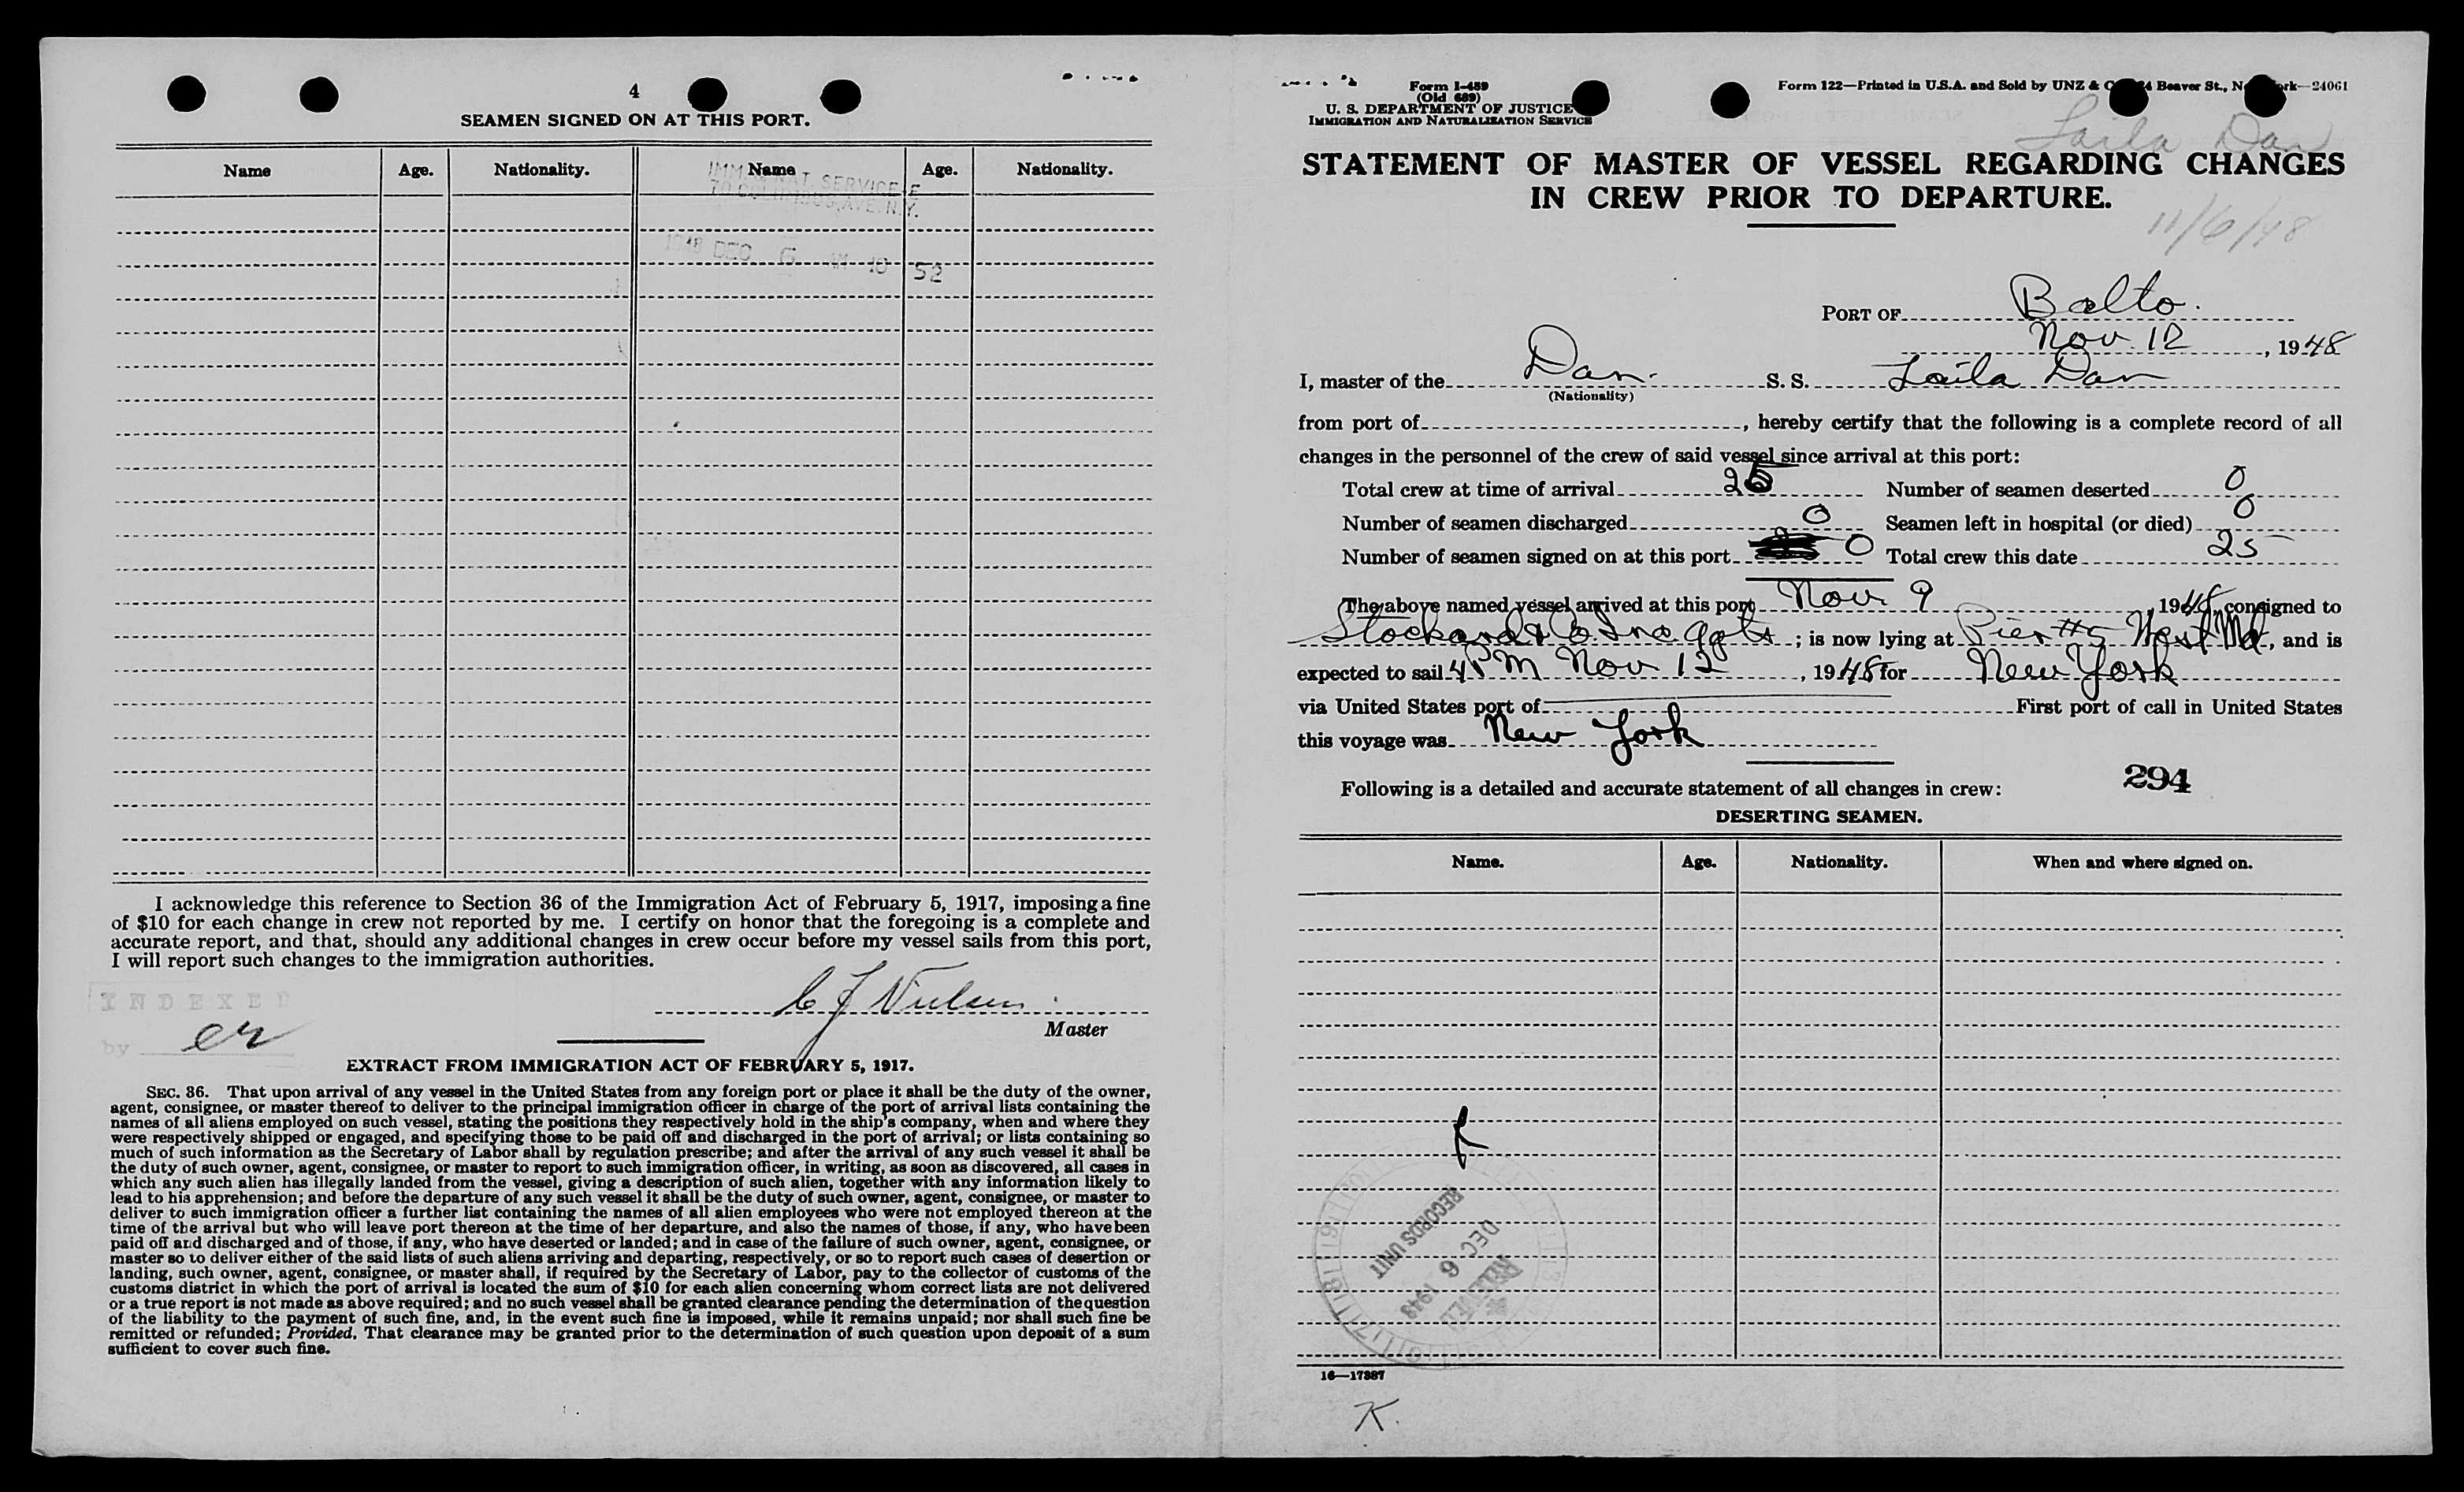 4
SEAMEN SIGNED ON AT THIS PORT.
Name Age. Nationality. Name Age. Nationality.
1948 DEC 6 AM 10 52
I acknowledge this reference to Section 36 of the Immigration Act of February 5, 1917, imposing a fine
of $10 for each change in crew not reported by me. I certify on honor that the foregoing is a complete and
accurate report, and that, should any additional changes in crew occur before my vessel sails from this port,
I will report such changes to the immigration authorities.
C J Nielsen
Master
INDEXED
by er
EXTRACT FROM IMMIGRATION ACT OF FEBRUARY 5, 1917.
SEC. 36. That upon arrival of any vessel in the United States from any foreign port or place it shall be the duty of the owner,
agent, consignee, or master thereof to deliver to the principal immigration officer in charge of the port of arrival lists containing the
names of all aliens employed on such vessel, stating the positions they respectively hold in the ship's company, when and where they
were respectively shipped or engaged, and specifying those to be paid off and discharged in the port of arrival; or lists containing so
much of such information as the Secretary of Labor shall by regulation prescribe; and after the arrival of any such vessel it shall be
the duty of such owner, agent, consignee, or master to report to such immigration officer, in writing, as soon as discovered, all cases in
which any such alien has illegally landed from the vessel, giving a description of such alien, together with any information likely to
lead to his apprehension; and before the departure of any such vessel it shall be the duty of such owner, agent, consignee, or master to
deliver to such immigration officer a further list containing the names of all alien employees who were not employed thereon at the
time of the arrival but who will leave port thereon at the time of her departure, and also the names of those, if any, who have been
paid off and discharged and of those, if any, who have deserted or landed; and in case of the failure of such owner, agent, consignee, or
master so to deliver either of the said lists of such aliens arriving and departing, respectively, or so to report such cases of desertion or
landing, such owner, agent, consignee, or master shall, if required by the Secretary of Labor, pay to the collector of customs of the
customs district in which the port of arrival is located the sum of $10 for each alien concerning whom correct lists are not delivered
or a true report is not made as above required; and no such vessel shall be granted clearance pending the determination of the question
of the liability to the payment of such fine, and, in the event such fine is imposed, while it remains unpaid; nor shall such fine be
remitted or refunded; Provided, That clearance may be granted prior to the determination of such question upon deposit of a sum
sufficient to cover such fine.
Form I-489
(Old 689)
U. S. DEPARTMENT OF JUSTICE
IMMIGRATION AND NATURALIZATION SERVICE
Form 122—Printed in U.S.A. and Sold by UNZ & Beaver St., 24061
Laila Dan
STATEMENT OF MASTER OF VESSEL REGARDING CHANGES
IN CREW PRIOR TO DEPARTURE.
11/6/48
PORT OF Balto.
Nov. 12, 1948
I, master of the Dan. S. S. Laila Dan
(Nationality)
from port of , hereby certify that the following is a complete record of all
changes in the personnel of the crew of said vessel since arrival at this port:
Total crew at time of arrival 25 Number of seamen deserted 0
Number of seamen discharged 0 Seamen left in hospital (or died) 0
Number of seamen signed on at this port 0 Total crew this date 25
The above named vessel arrived at this port Nov 9, 1948, consigned to
Stockard & Co Inc Agts ; is now lying at Pier #5 West Md, and is
expected to sail 4 PM Nov 12, 1948 for New York
via United States port of First port of call in United States
this voyage was New York
294
Following is a detailed and accurate statement of all changes in crew:
DESERTING SEAMEN.
Name. Age. Nationality. When and where signed on.
RECORDS UNIT
DEC 6 1948
RECEIVED
16—17387
K.